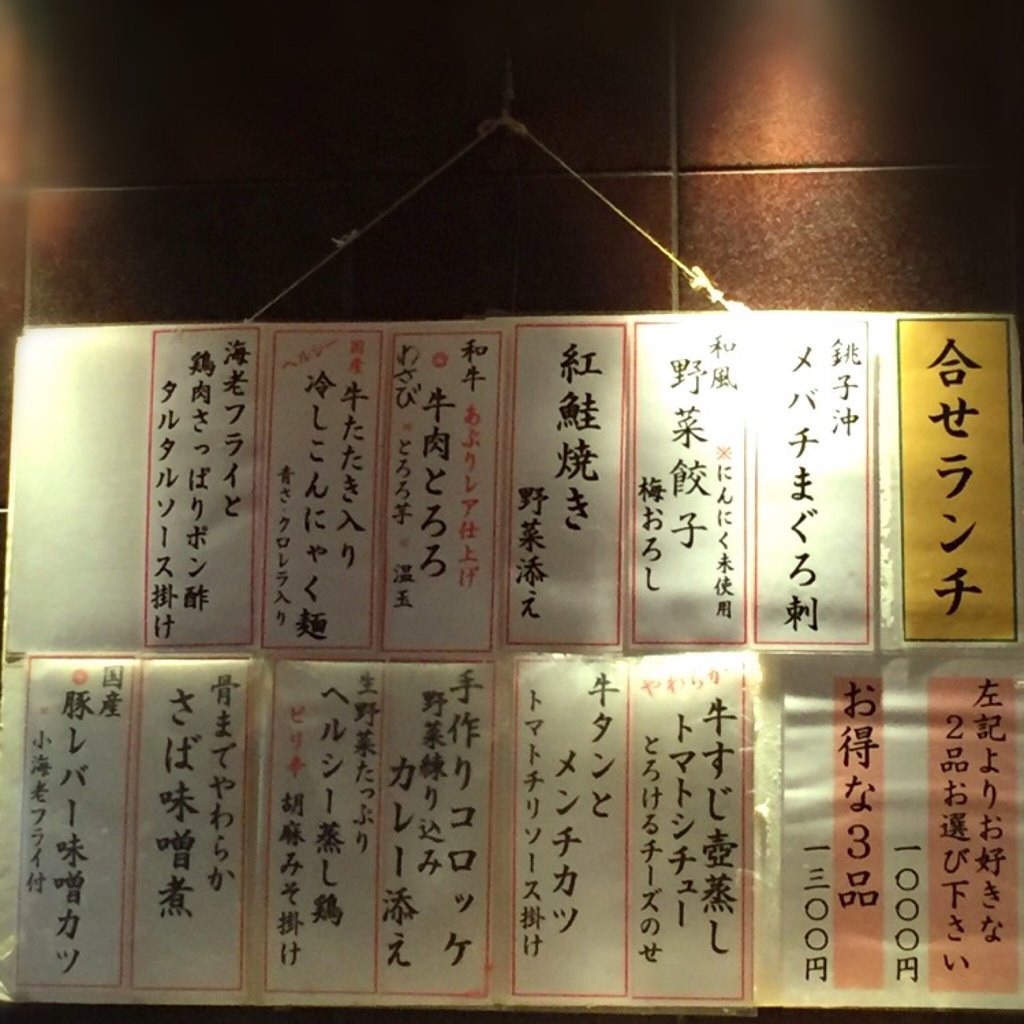 合せランチ
銚子沖
メバチまぐろ刺
和風
野菜餃子
※にんにく未使用
梅おろし
紅鮭焼き
野菜添え
和牛
あぶりレア仕上げ
牛肉とろろ
わさび ※とろろ芋 ※温玉
国産
ヘルシー
牛たたき入り
冷しこんにゃく麺
青さ・クロレラ入り
海老フライと
鶏肉さっぱりポン酢
タルタルソース掛け
左記よりお好きな
2品お選び下さい
一〇〇〇円
お得な3品
一三〇〇円
やわらか
牛すじ壺蒸し
トマトシチュー
とろけるチーズのせ
牛タンと
メンチカツ
トマトチリソース掛け
手作りコロッケ
野菜練り込み
カレー添え
生野菜たっぷり
ヘルシー蒸し鶏
ピリ辛 胡麻みそ掛け
骨までやわらか
さば味噌煮
国産
豚レバー味噌カツ
※小海老フライ付